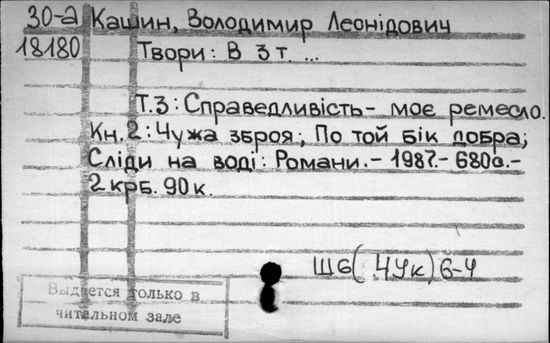 30-а Кашин, Володимир Леонідович
18180 Твори: В 3 т. ...
Т.3: Справедливість - моє ремесло.
Кн.2: Чужа зброя; По той бік добра;
Сліди на воді: Романи. - 1987. - 680с. -
2 крб. 90 к.
Ш6(4Ук)6-4
Выдается только в
читальном зале